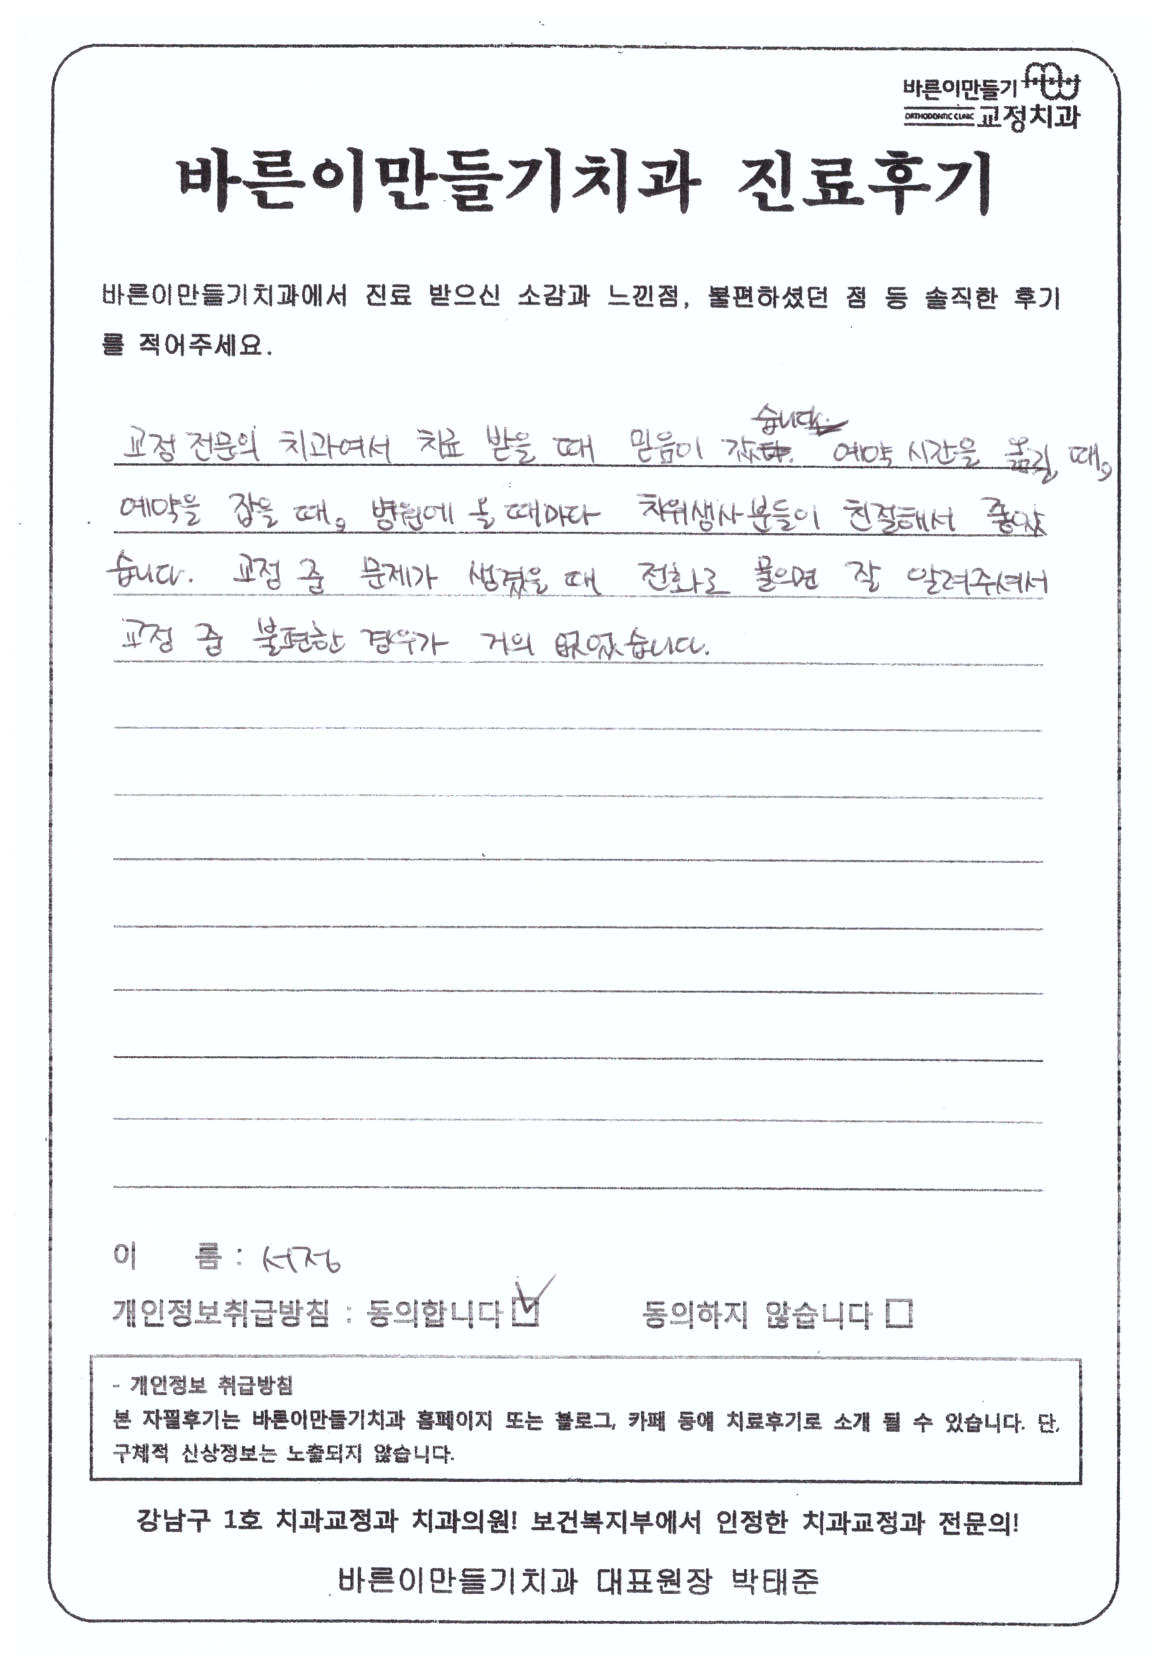 바른이만들기
ORTHODONTIC CLINIC 교정치과
바른이만들기치과 진료후기
바른이만들기치과에서 진료 받으신 소감과 느낀점, 불편하셨던 점 등 솔직한 후기
를 적어주세요.
습니다.
교정 전문의 치과여서 치료 받을 때 믿음이 갔다. 예약 시간을 옮길 때,
예약을 잡을 때, 병원에 올 때마다 치위생사분들이 친절해서 좋았
습니다. 교정 중 문제가 생겼을 때 전화로 물으면 잘 알려주셔서
교정 중 불편한 경우가 거의 없었습니다.
이 름 : 서정
개인정보취급방침 : 동의합니다 동의하지 않습니다
- 개인정보 취급방침
본 자필후기는 바른이만들기치과 홈페이지 또는 블로그, 카페 등에 치료후기로 소개 될 수 있습니다. 단,
구체적 신상정보는 노출되지 않습니다.
강남구 1호 치과교정과 치과의원! 보건복지부에서 인정한 치과교정과 전문의!
바른이만들기치과 대표원장 박태준